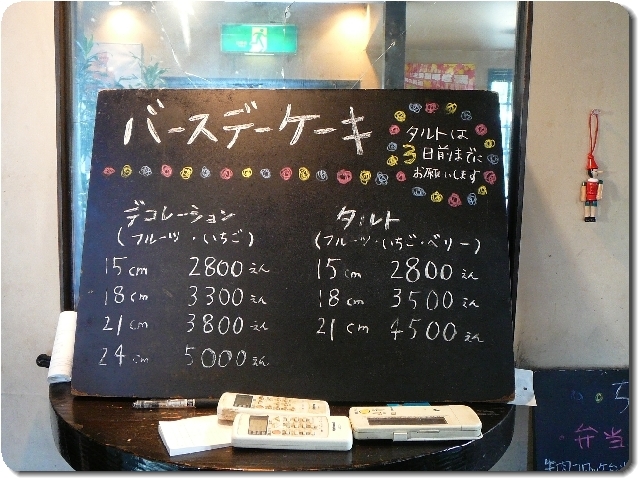 バースデーケーキ
タルトは
3日前までに
お願いします
デコレーション
(フルーツ・いちご)
15cm 2800えん
18cm 3300えん
21cm 3800えん
24cm 5000えん
タルト
(フルーツ・いちご・ベリー)
15cm 2800えん
18cm 3500えん
21cm 4500えん
弁当
牛肉コロッケ